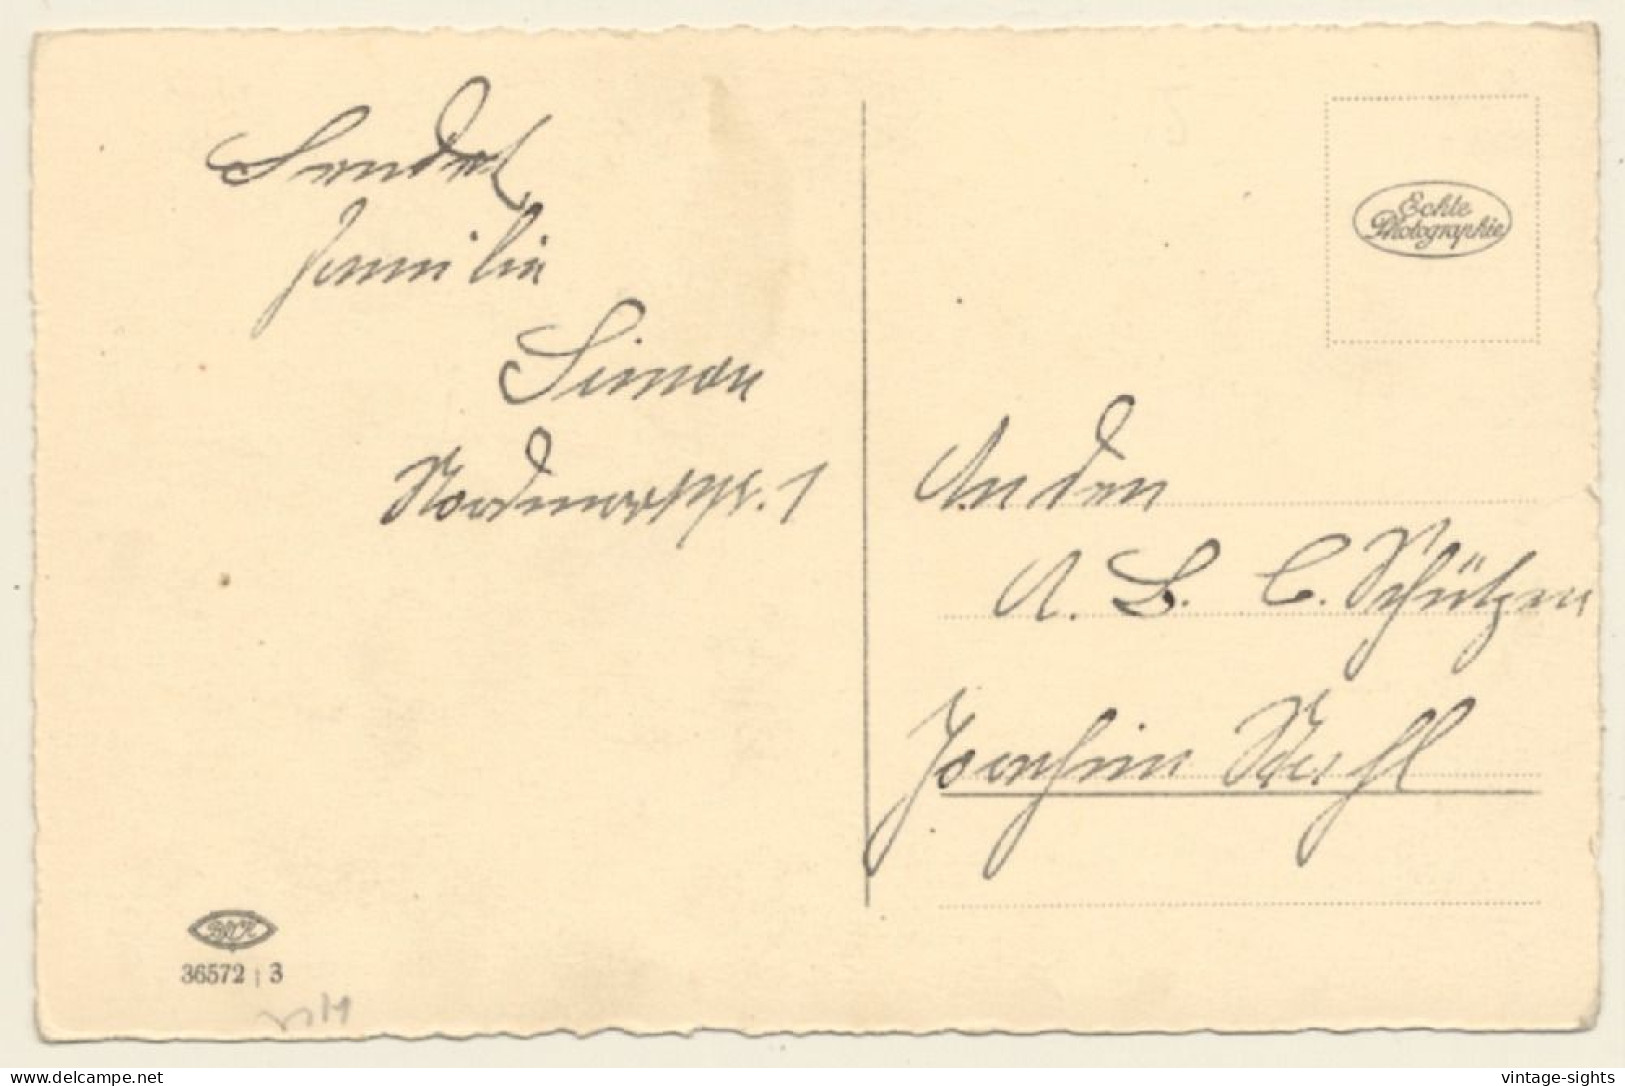 Sendet
Familie
Simon
Nordmarkstr. 1
Echte
Photographie
An den
A. B. C. Schützen
Joachim
36572 | 3
delcampe.net
vintage-sights